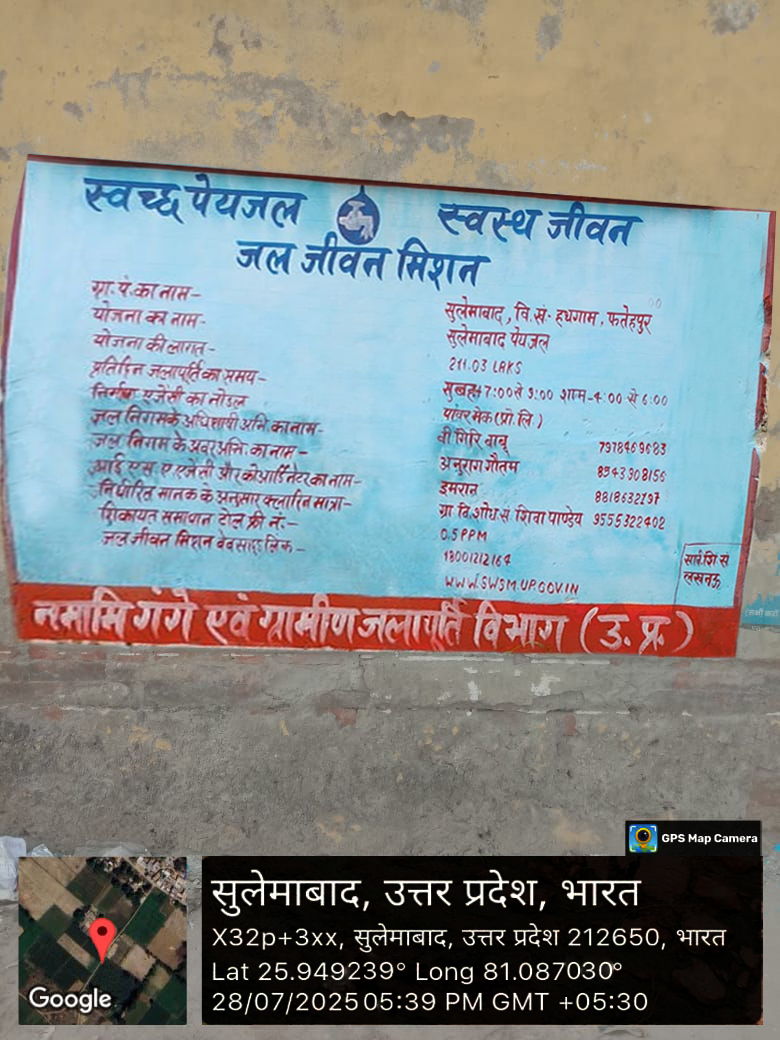 स्वच्छ पेयजल स्वस्थ जीवन
जल जीवन मिशन
ग्रा. पं. का नाम – सुलेमाबाद, वि. सं- हथगाम, फतेहपुर
योजना का नाम- सुलेमाबाद पेयजल
योजना की लागत- 211.03 LAKS
प्रतिदिन जलापूर्ति का समय- सुबह 7:00 से 9:00 शाम-4:00 से 6:00
निर्माण एजेंसी का नोडल पॉवर मेक (प्रो. लि)
जल निगम के अधिशाषी अभि. का नाम- वी गिरि बाबू 7978469683
जल निगम के अवर अभि. का नाम- अनुराग गौतम 8943308156
आई एस ए एजेंसी और कोआर्डिनेटर का नाम- इमरान 8818632797
निर्धारित मानक के अनुसार क्लोरिन मात्रा- ग्रा. वि. शोध सं शिवा पाण्डेय 9555322402
शिकायत समाधान टोल फ्री नं:- 0.5 PPM
जल जीवन मिशन वेबसाइट लिंक- 18001212164
WWW.SWSM.UP.GOV.IN
सा वि
लखनऊ
नमामि गंगे एवं ग्रामीण जलापूर्ति विभाग (उ. प्र.)
GPS Map Camera
सुलेमाबाद, उत्तर प्रदेश, भारत
X32p+3xx, सुलेमाबाद, उत्तर प्रदेश 212650, भारत
Lat 25.949239° Long 81.087030°
28/07/2025 05:39 PM GMT +05:30
Google